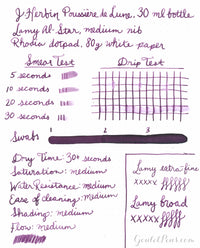 J. Herbin Poussière de Lune, 30 ml bottle
Lamy Al-Star, medium nib
Rhodia dotpad, 80g white paper
Smear Test
Drip Test
5 seconds
10 seconds
20 seconds
30 seconds
Swabs
1 2 3
Dry Time: 30+ seconds
Saturation: medium
Water Resistance: medium
Ease of cleaning: medium
Shading: medium
Flow: medium
Lamy extra fine
xxxxx
Lamy broad
xxxxx
GouletPens.com